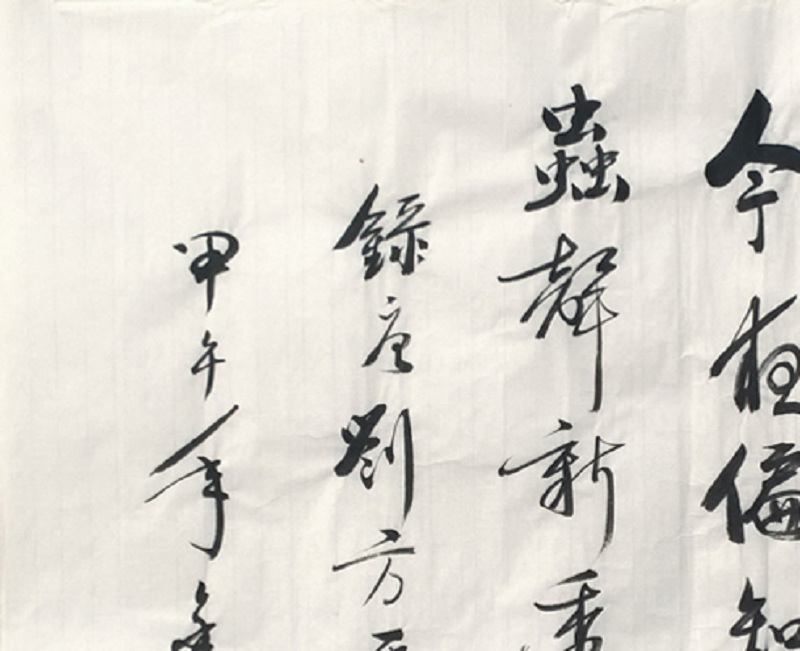 今夜偏知
蟲聲新
錄唐劉方
甲午年